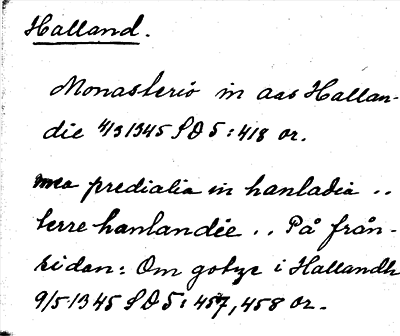 Halland.
Monasterio in aas Hallan-
die 4/3 1345 SD 5:418 or.
mea predialia in hanladia ..
terre hanlandie .. På från-
sidan: Om gotzs i Hallandh
9/5 1345 SD 5: 457, 458 or.